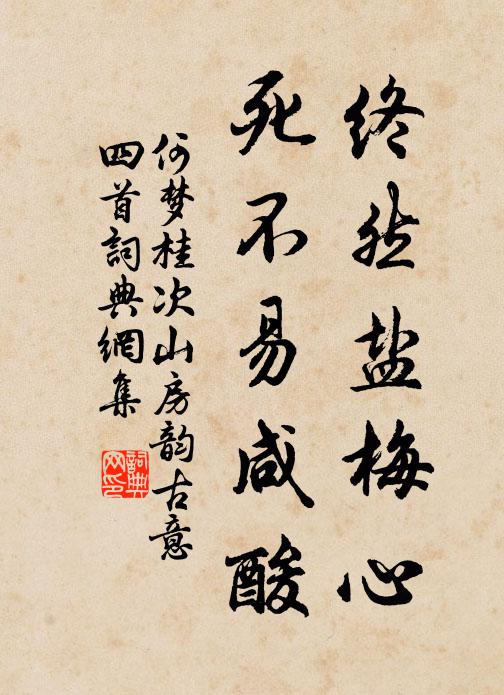 终然盐梅心
死不易咸酸
何梦桂次山房韵古意
四首詞典網集
詞典
网印